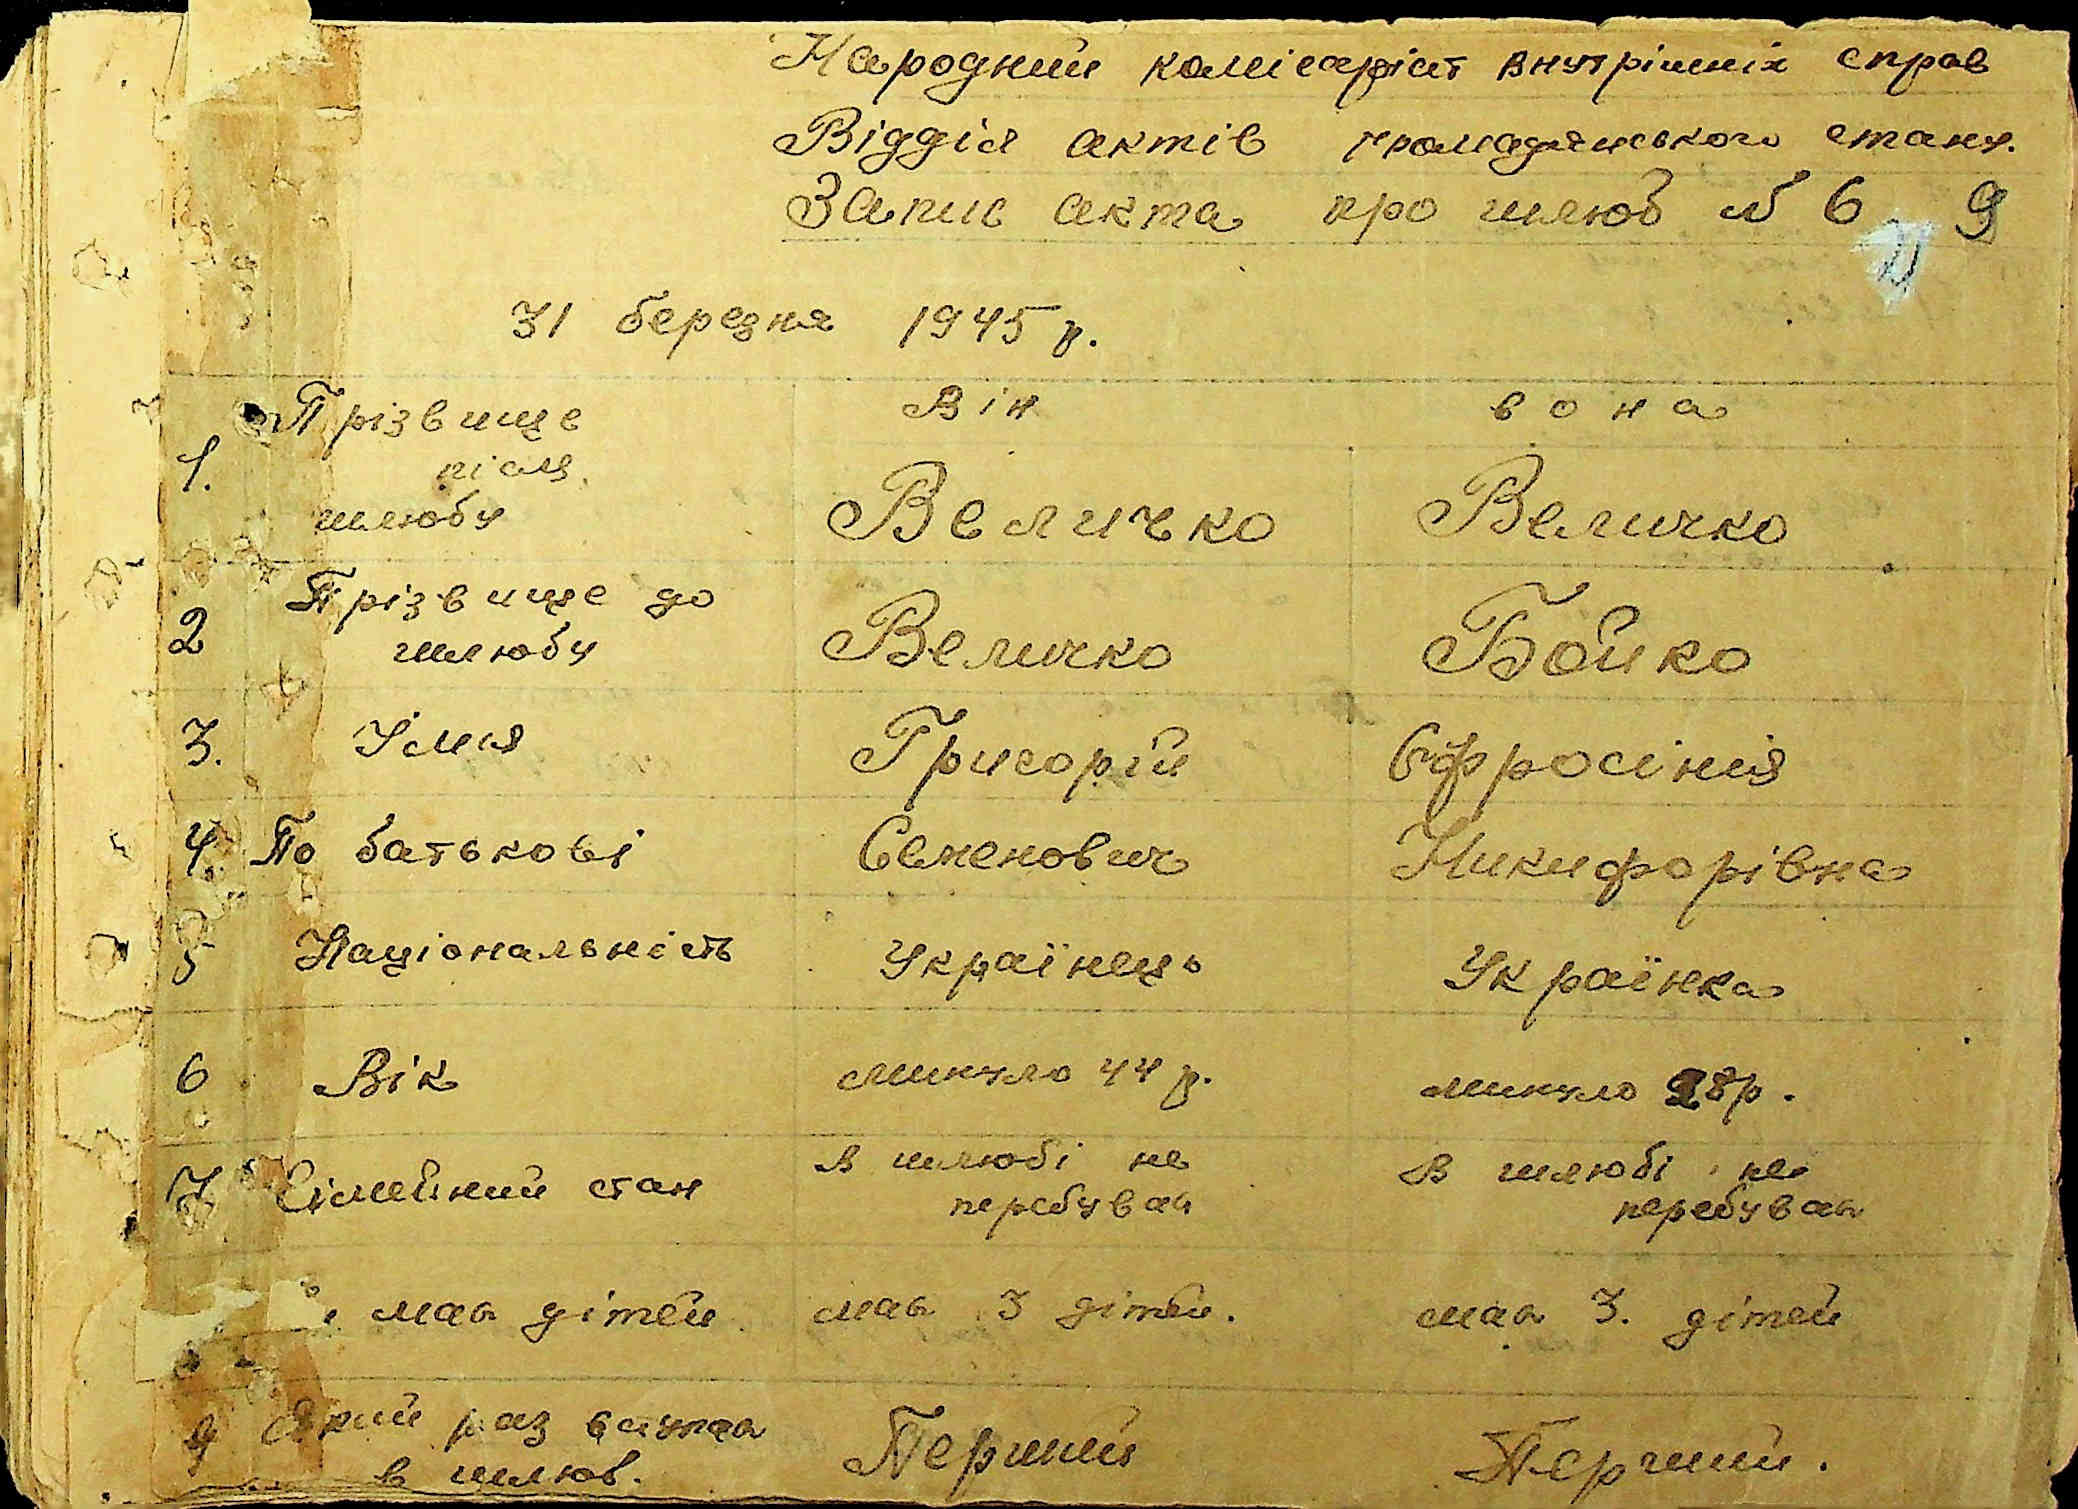 Народний комісаріат внутрішніх справ
Відділ актів громадянського стану.
Запис акта про шлюб № 6 9
31 березня 1945 р.
Він вона
1. Прізвище після шлюбу Величко Величко
2 Прізвище до шлюбу Величко Бойко
3. Імия Григорій Єфросінія
4. По батькові Семенович Никифорівна
5 Національність Українець Українка
6 Вік минуло 44 р. минуло 28р.
7 Сімейний стан в шлюбі не перебував в шлюбі не перебував
має дітей має 3 дітей. має 3. дітей
9 Який раз вступає в шлюб. Перший Перший.